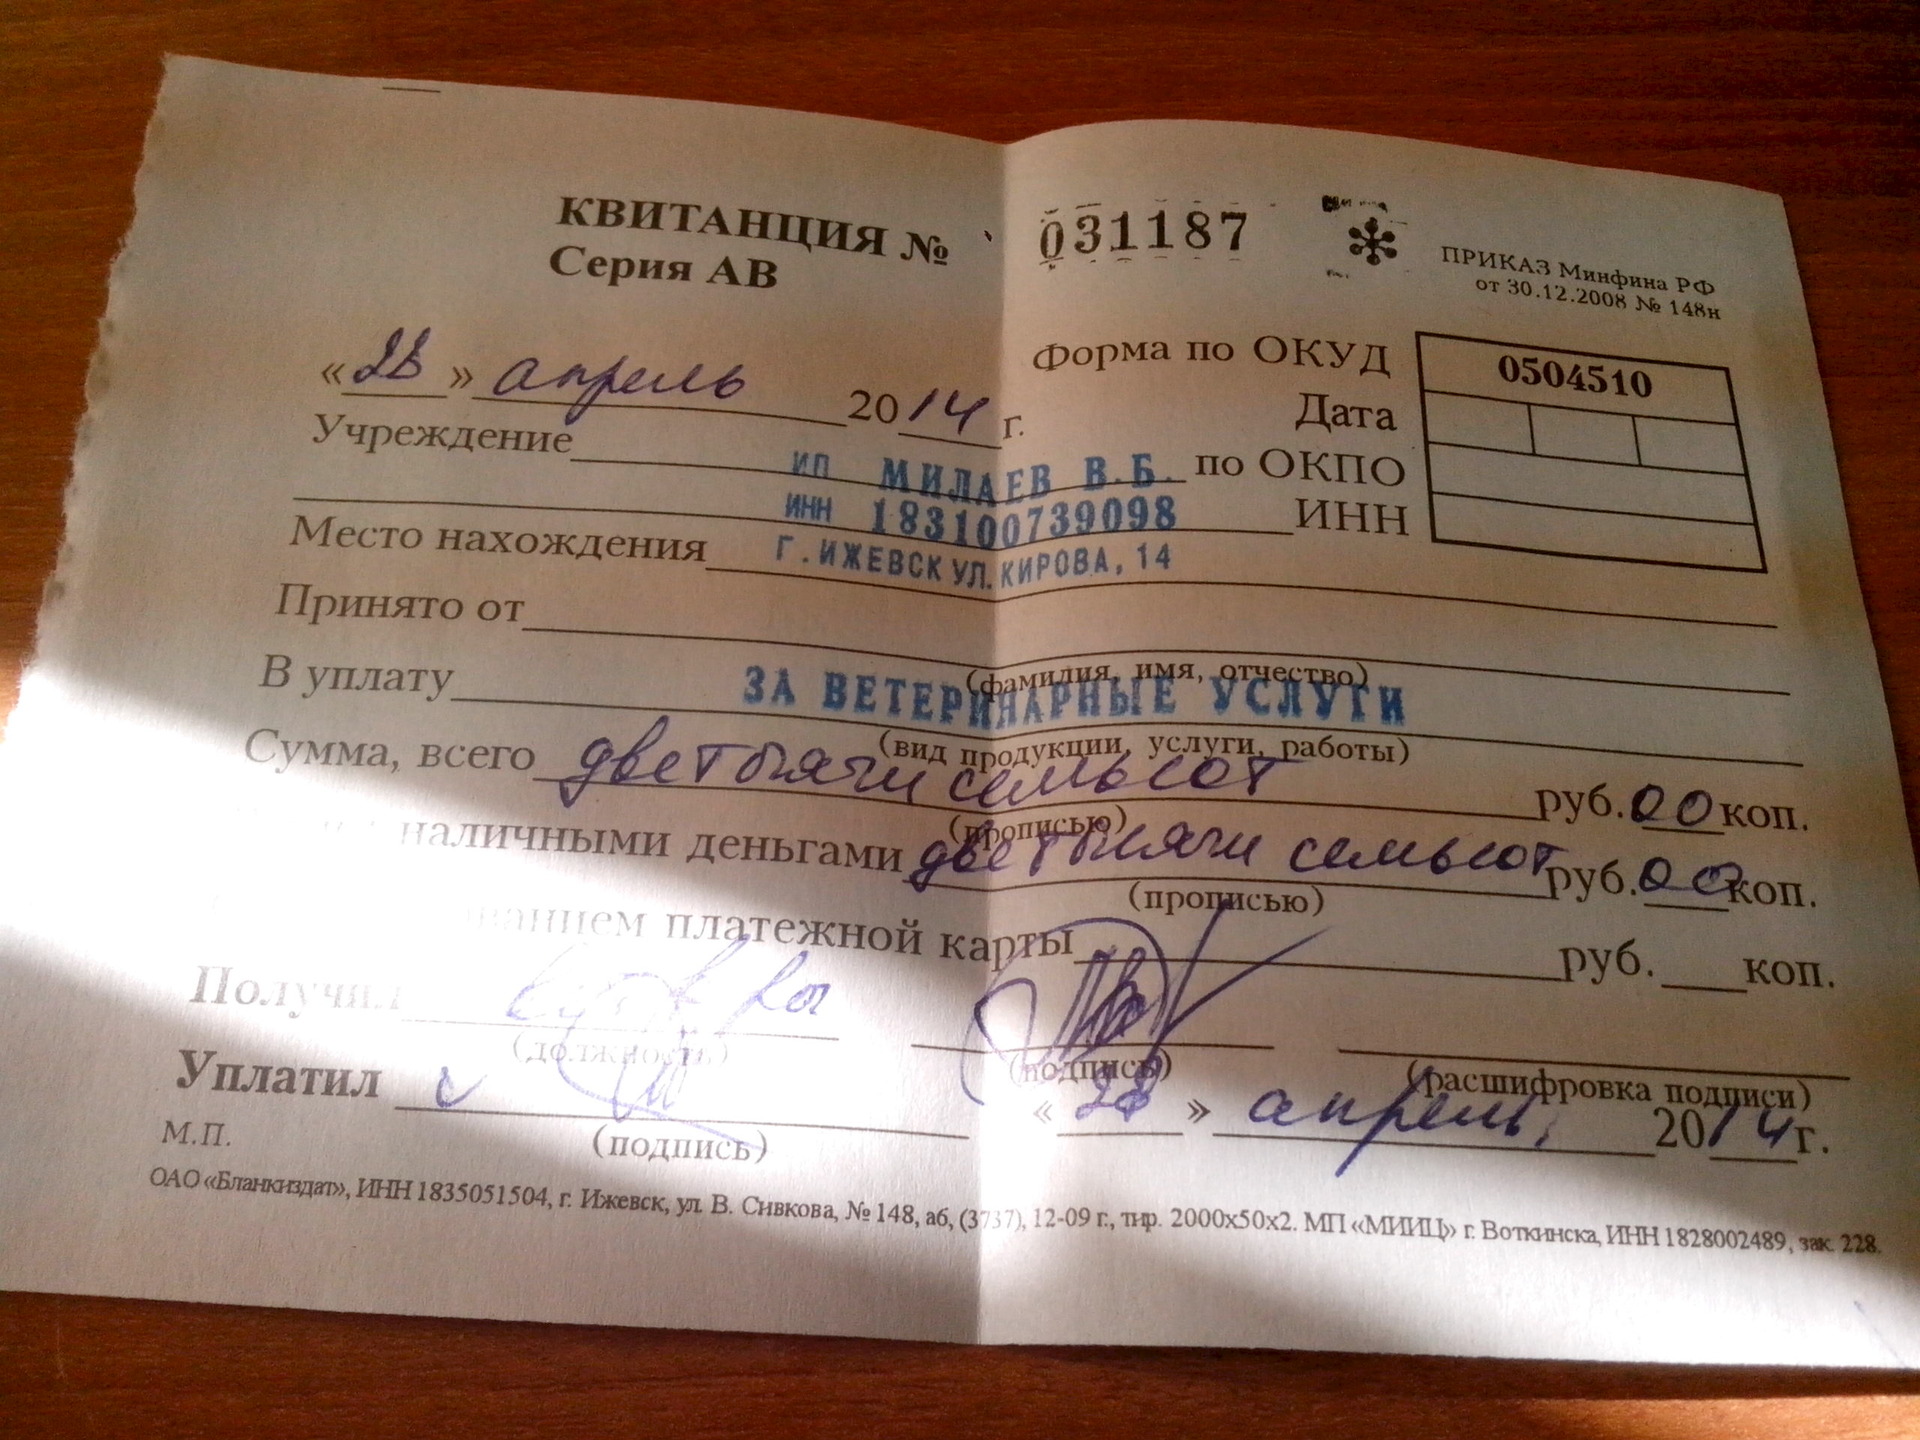 КВИТАНЦИЯ № 031187
Серия АВ
ПРИКАЗ Минфина РФ
от 30.12.2008 № 148н
Форма по ОКУД 0504510
«28» апрель 2014 г.
Дата
Учреждение ИП МИЛАЕВ В.Б. по ОКПО
ИНН 183100739098 ИНН
Место нахождения Г.ИЖЕВСК УЛ.КИРОВА, 14
Принято от
(фамилия, имя, отчество)
В уплату ЗА ВЕТЕРИНАРНЫЕ УСЛУГИ
(вид продукции, услуги, работы)
Сумма, всего две тысячи семьсот руб. 00 коп.
(прописью)
наличными деньгами две тысячи семьсот руб. 00 коп.
(прописью)
платежной карты руб. коп.
Получил
(должность) (подпись) (расшифровка подписи)
Уплатил «28» апрель 2014 г.
(подпись)
М.П.
ОАО «Бланкиздат», ИНН 1835051504, г. Ижевск, ул. В. Сивкова, № 148, аб, (3737), 12-09 г., тир. 2000х50х2. МП «МИИЦ» г. Воткинска, ИНН 1828002489, зак. 228.